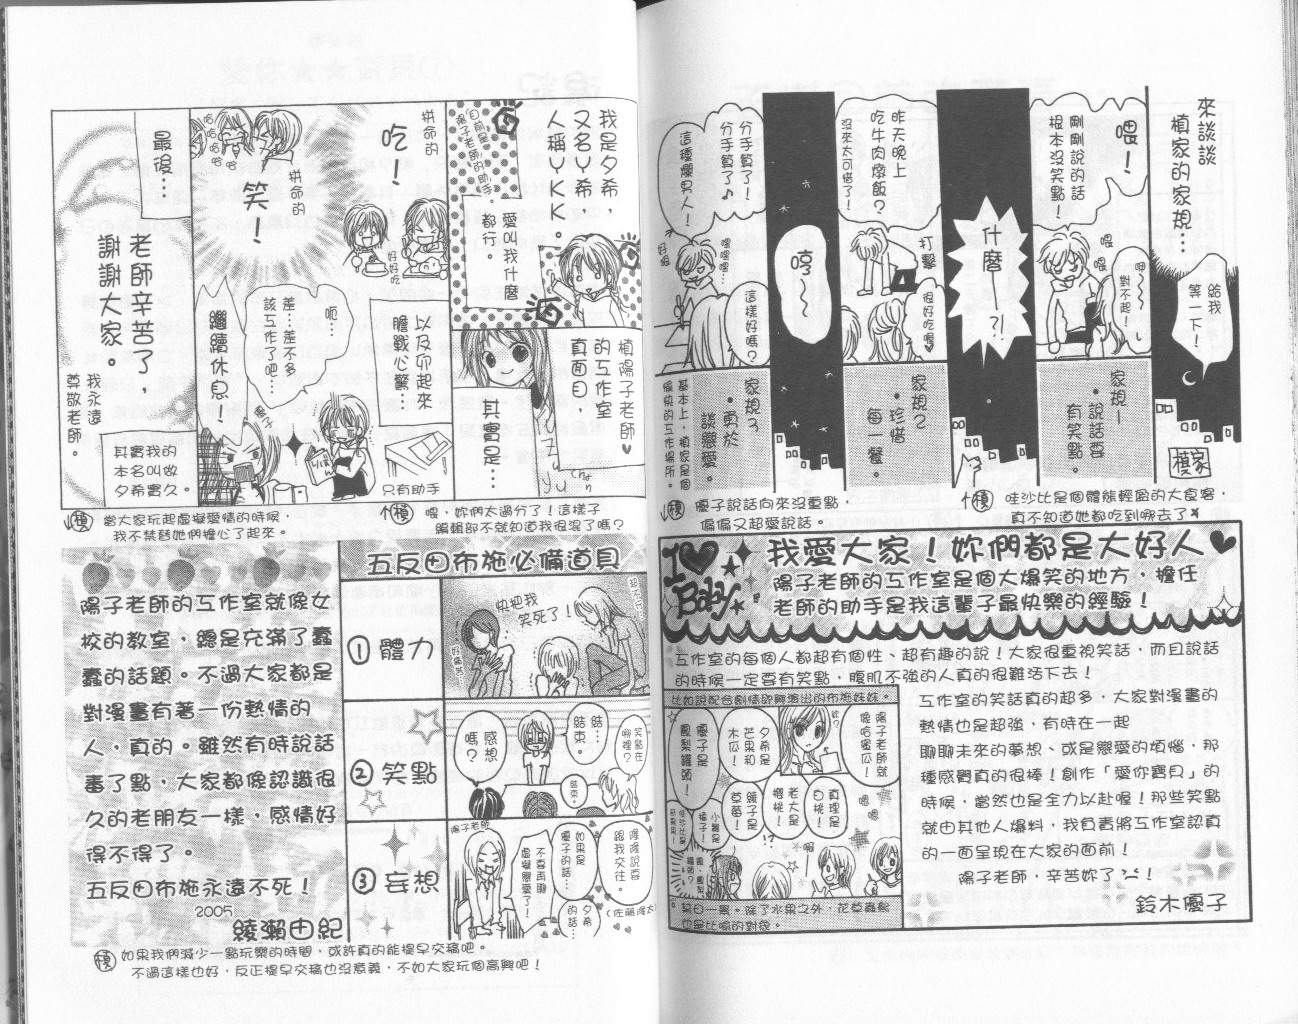 來談談
槙家的家規…
給我
等一下！
槙家
喂！
剛剛說的話
根本沒笑點！
喂
喂
呷…
對不起！
家規1
・說話要
有笑點。
什麼…?!
昨天晚上
吃牛肉燴飯？
沒來太可惜了！
打擊
很好吃喔♥
家規2
・珍惜
每一餐。
哼～～
分手算了！
分手算了♪
這種爛男人！
嘿
嘿嘿…
這樣好嗎？
好狠
家規3
・勇於
談戀愛。
基本上，槙家是個
愉快的工作場所。
優子說話向來沒重點，
偏偏又超愛說話。
哇沙比是個體態輕盈的大食客，
真不知道她都吃到哪去了
I♥
Baby
我愛大家！妳們都是大好人♥
陽子老師的工作室是個大爆笑的地方，擔任
老師的助手是我這輩子最快樂的經驗！
工作室的每個人都超有個性、超有趣的說！大家很重視笑話，而且說話
的時候一定要有笑點，腹肌不強的人真的很難活下去！
比如說配合劇情即興演出的布施妹妹。
陽子老師就
像哈密瓜！
夕希是
芒果和
木瓜！
優子是
鳳梨罐頭！
真理是
白桃！
老大是
櫻桃！
鏡子是
草莓！
小麗是
橘子！
!?
啊
嗯
嗯
某日一景。除了水果之外，花草蟲魚
也是比喻的對象。
工作室的笑話真的超多，大家對漫畫的
熱情也是超強，有時在一起
聊聊未來的夢想、或是戀愛的煩惱，那
種感覺真的很棒！創作「愛你寶貝」的
時候，當然也是全力以赴喔！那些笑點
就由其他人爆料，我負責將工作室認真
的一面呈現在大家的面前！
陽子老師，辛苦妳了！
鈴木優子
我是夕希，
又名Y希，
人稱YKK。
目前是
陽子老師的助手。
愛叫我什麼
都行。
槙陽子老師♥
的工作室
真面目，
其實是…
拼命的
吃！
好好吃
拼命的
笑！
哈
哈
哈
哈
哈
以及卯起來
膽戰心驚…
只有助手
呃…
差…差不多
該工作了吧…
繼續休息！
最後…
老師辛苦了，
謝謝大家。
我永遠
尊敬老師。
其實我的
本名叫做
夕希實久。
當大家玩起虛擬愛情的時候，
我不禁替她們擔心了起來。
喂，妳們太過分了！這樣子
編輯部不就知道我很混了嗎？
陽子老師的工作室就像女
校的教室，總是充滿了蠢
蠢的話題。不過大家都是
對漫畫有著一份熱情的
人，真的。雖然有時說話
毒了點，大家都像認識很
久的老朋友一樣，感情好
得不得了。
五反田布施永遠不死！
2005
綾瀨由紀
五反田布施必備道具
①體力
快把我
笑死了！
好痛苦
②笑點
笑點在
哪裡？
結…
結束。
結束。
感想
嗎？
③妄想
陽子老師
隆隆說要
跟我交往。
如果是
優子的話…
不要再聊
虛擬戀愛了！
夕希
的話…
如果我們減少一點玩樂的時間，或許真的能提早交稿吧。
不過這樣也好，反正提早交稿也沒意義，不如大家玩個高興吧！